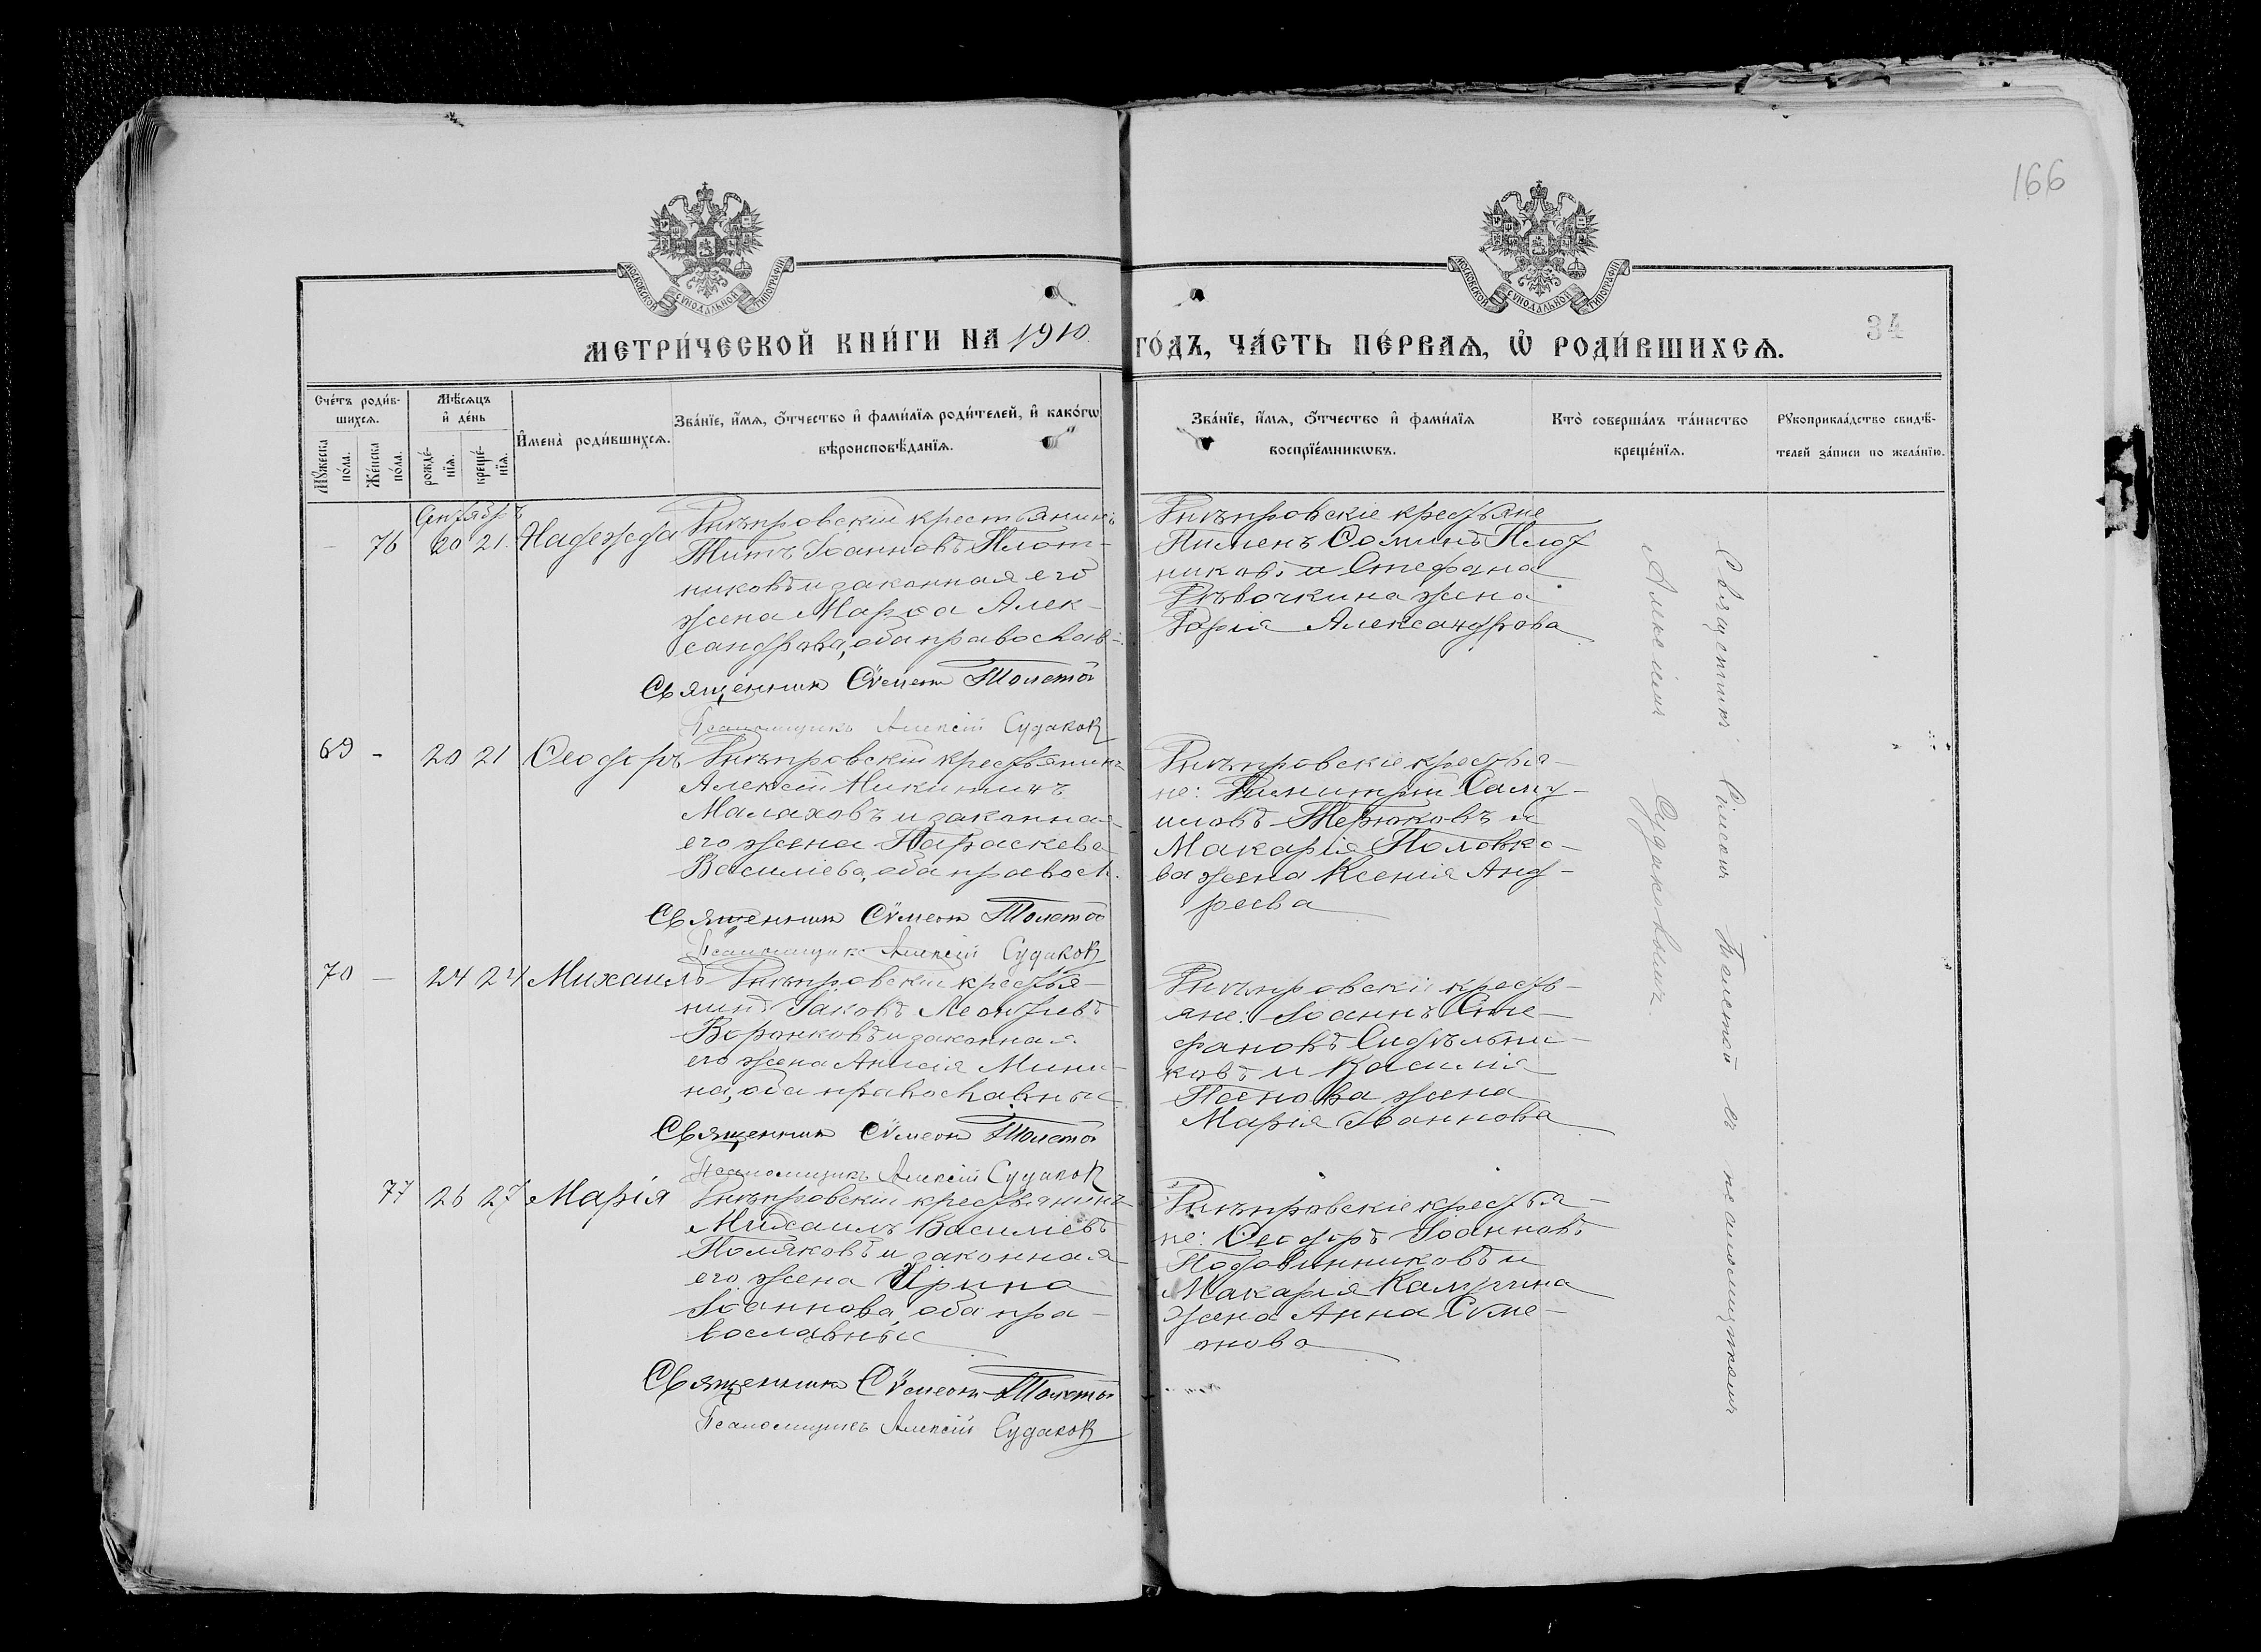 166
МОСКОВСКОЙ СѴНОДАЛЬНОЙ ТИПОГРАФІИ
МОСКОВСКОЙ СѴНОДАЛЬНОЙ ТИПОГРАФІИ
МЕТРИ́ЧЕСКОЙ КНИ́ГИ НА 1910 ГО́ДЪ, ЧА́СТЬ ПЕ́РВАѦ, Ѡ҆ РОДИ́ВШИХСѦ.
34
Сче́тъ роди́в-
шихсѧ.
Мꙋ́жеска по́ла.
Же́нска по́ла.
Мѣ́сѧцъ
и҆ де́нь
рожде́-
нїѧ.
креще́-
нїѧ.
И҆мена̀ роди́вшихсѧ.
Зва́нїе, и҆́мѧ, ѻ҆́тчество и҆ фами́лїѧ роди́телей, и҆ како́гѡ
вѣроисповѣ́данїѧ.
Зва́нїе, и҆́мѧ, ѻ҆́тчество и҆ фами́лїѧ
воспрїе́мникѡвъ.
Кто̀ соверша́лъ та́инство
креще́нїѧ.
Рꙋкоприкла́дство свидѣ́-
телей за́писи по жела́нїю.
Сентябрь
76 20 21. Надежда
Днѣпровскій крестьянинъ
Титъ Іоанновъ Плот-
никовъ и законная его
жена Марѳа Алек-
сандрова, оба православ.
Священник Сѵмеон Толстой
Псаломщикъ Алексій Судаков
Днѣпровскіе крестьяне
Пименъ Ѳоминъ Плот
никовъ и Стефана
Дѣвочкина жена
Дарія Александрова
69 - 20 21 Ѳеодоръ
Днѣпровскій крестьянинъ
Алексій Никитинъ
Малаховъ и законная
его жена Параскева
Василіева, оба правосл.
Священник Сѵмеон Толстой
Псаломщикъ Алексій Судаков
Днѣпровскіе крестья-
не: Димитрій Саму-
иловъ Терюковъ и
Макарія Половко-
ва жена Ксенія Анд-
реева
70 - 24 24 Михаилъ
Днѣпровскій крестья-
нинъ Іаковъ Леонтіевъ
Воронковъ и законная
его жена Анисія Мини-
на, оба православные
Священник Сѵмеон Толстой
Псаломщикъ Алексій Судаков
Днѣпровскіе кресть-
яне: Іоаннъ Сте-
фановъ Сидѣльни-
ковъ и Василія
жена
Марія Іоаннова
77 26 27 Марія
Днѣпровскій крестьянинъ
Михаилъ Василіевъ
Поляковъ и законная
его жена Ирина
Іоаннова, оба пра-
вославные
Священник Сѵмеон Толстой
Псаломщикъ Алексій Судаков
Днѣпровскіе крестья-
не: Ѳеодоръ Іоанновъ
Подовинниковъ и
Макарія
жена Анна Сѵме-
онова
Священник Сѵмеон Толстой съ псаломщиком
Алексіем Судаковымъ.